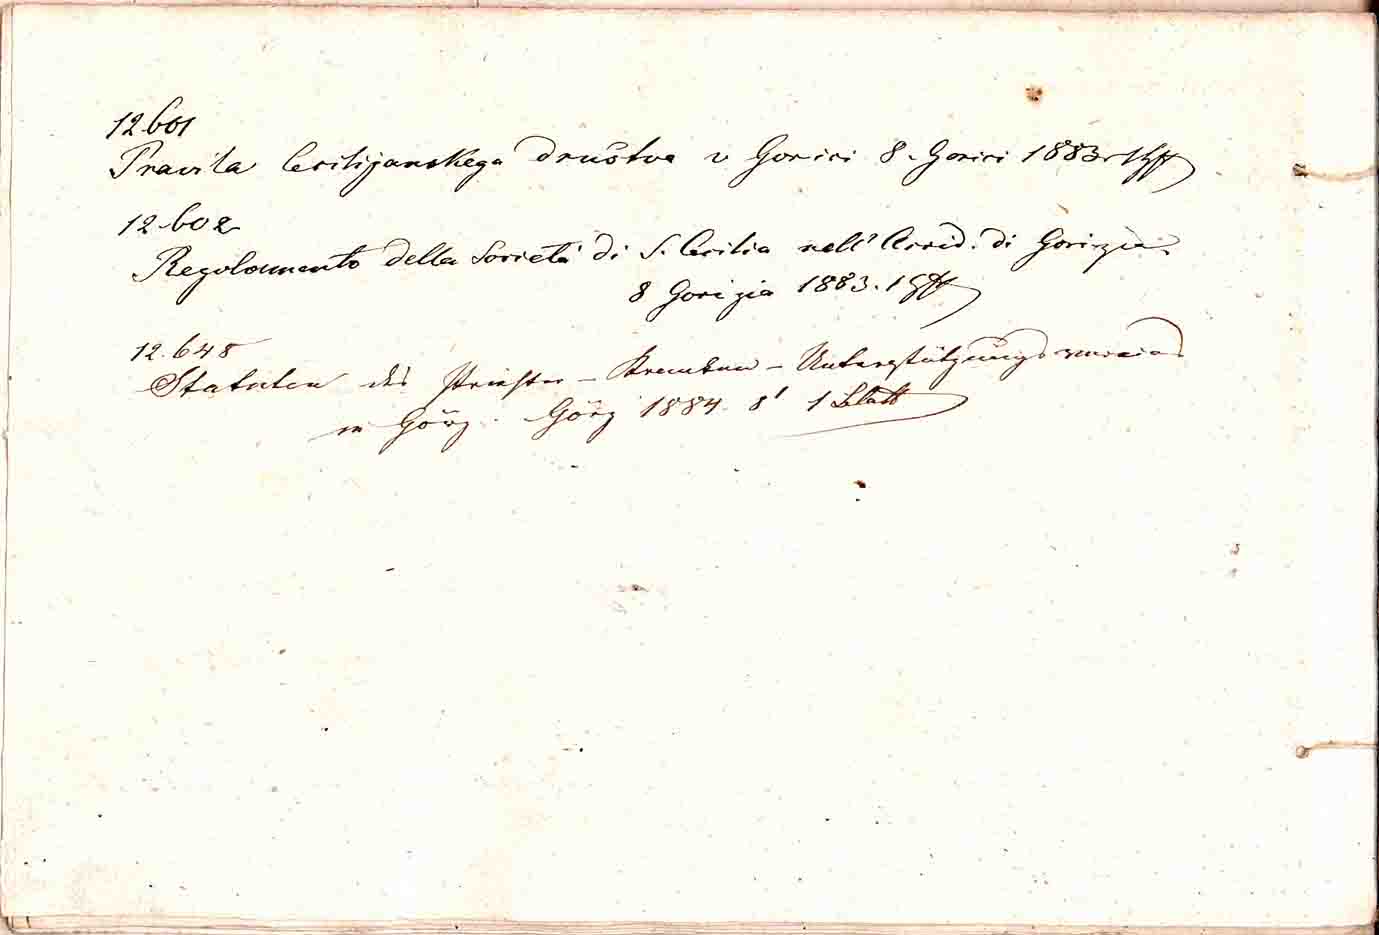 12.601
Pravila Cecilijanskega društva v Gorici 8. Gorici 1883. 1 Hft
12.602
Regolamento della Società di S. Cecilia nell' Arcid. di Gorizia.
8 Gorizia 1883. 1 Hft
12.648
Statuten des Priester-Kranken-Unterstützungsvereines
in Görz. Görz 1884. 8' 1 Blatt